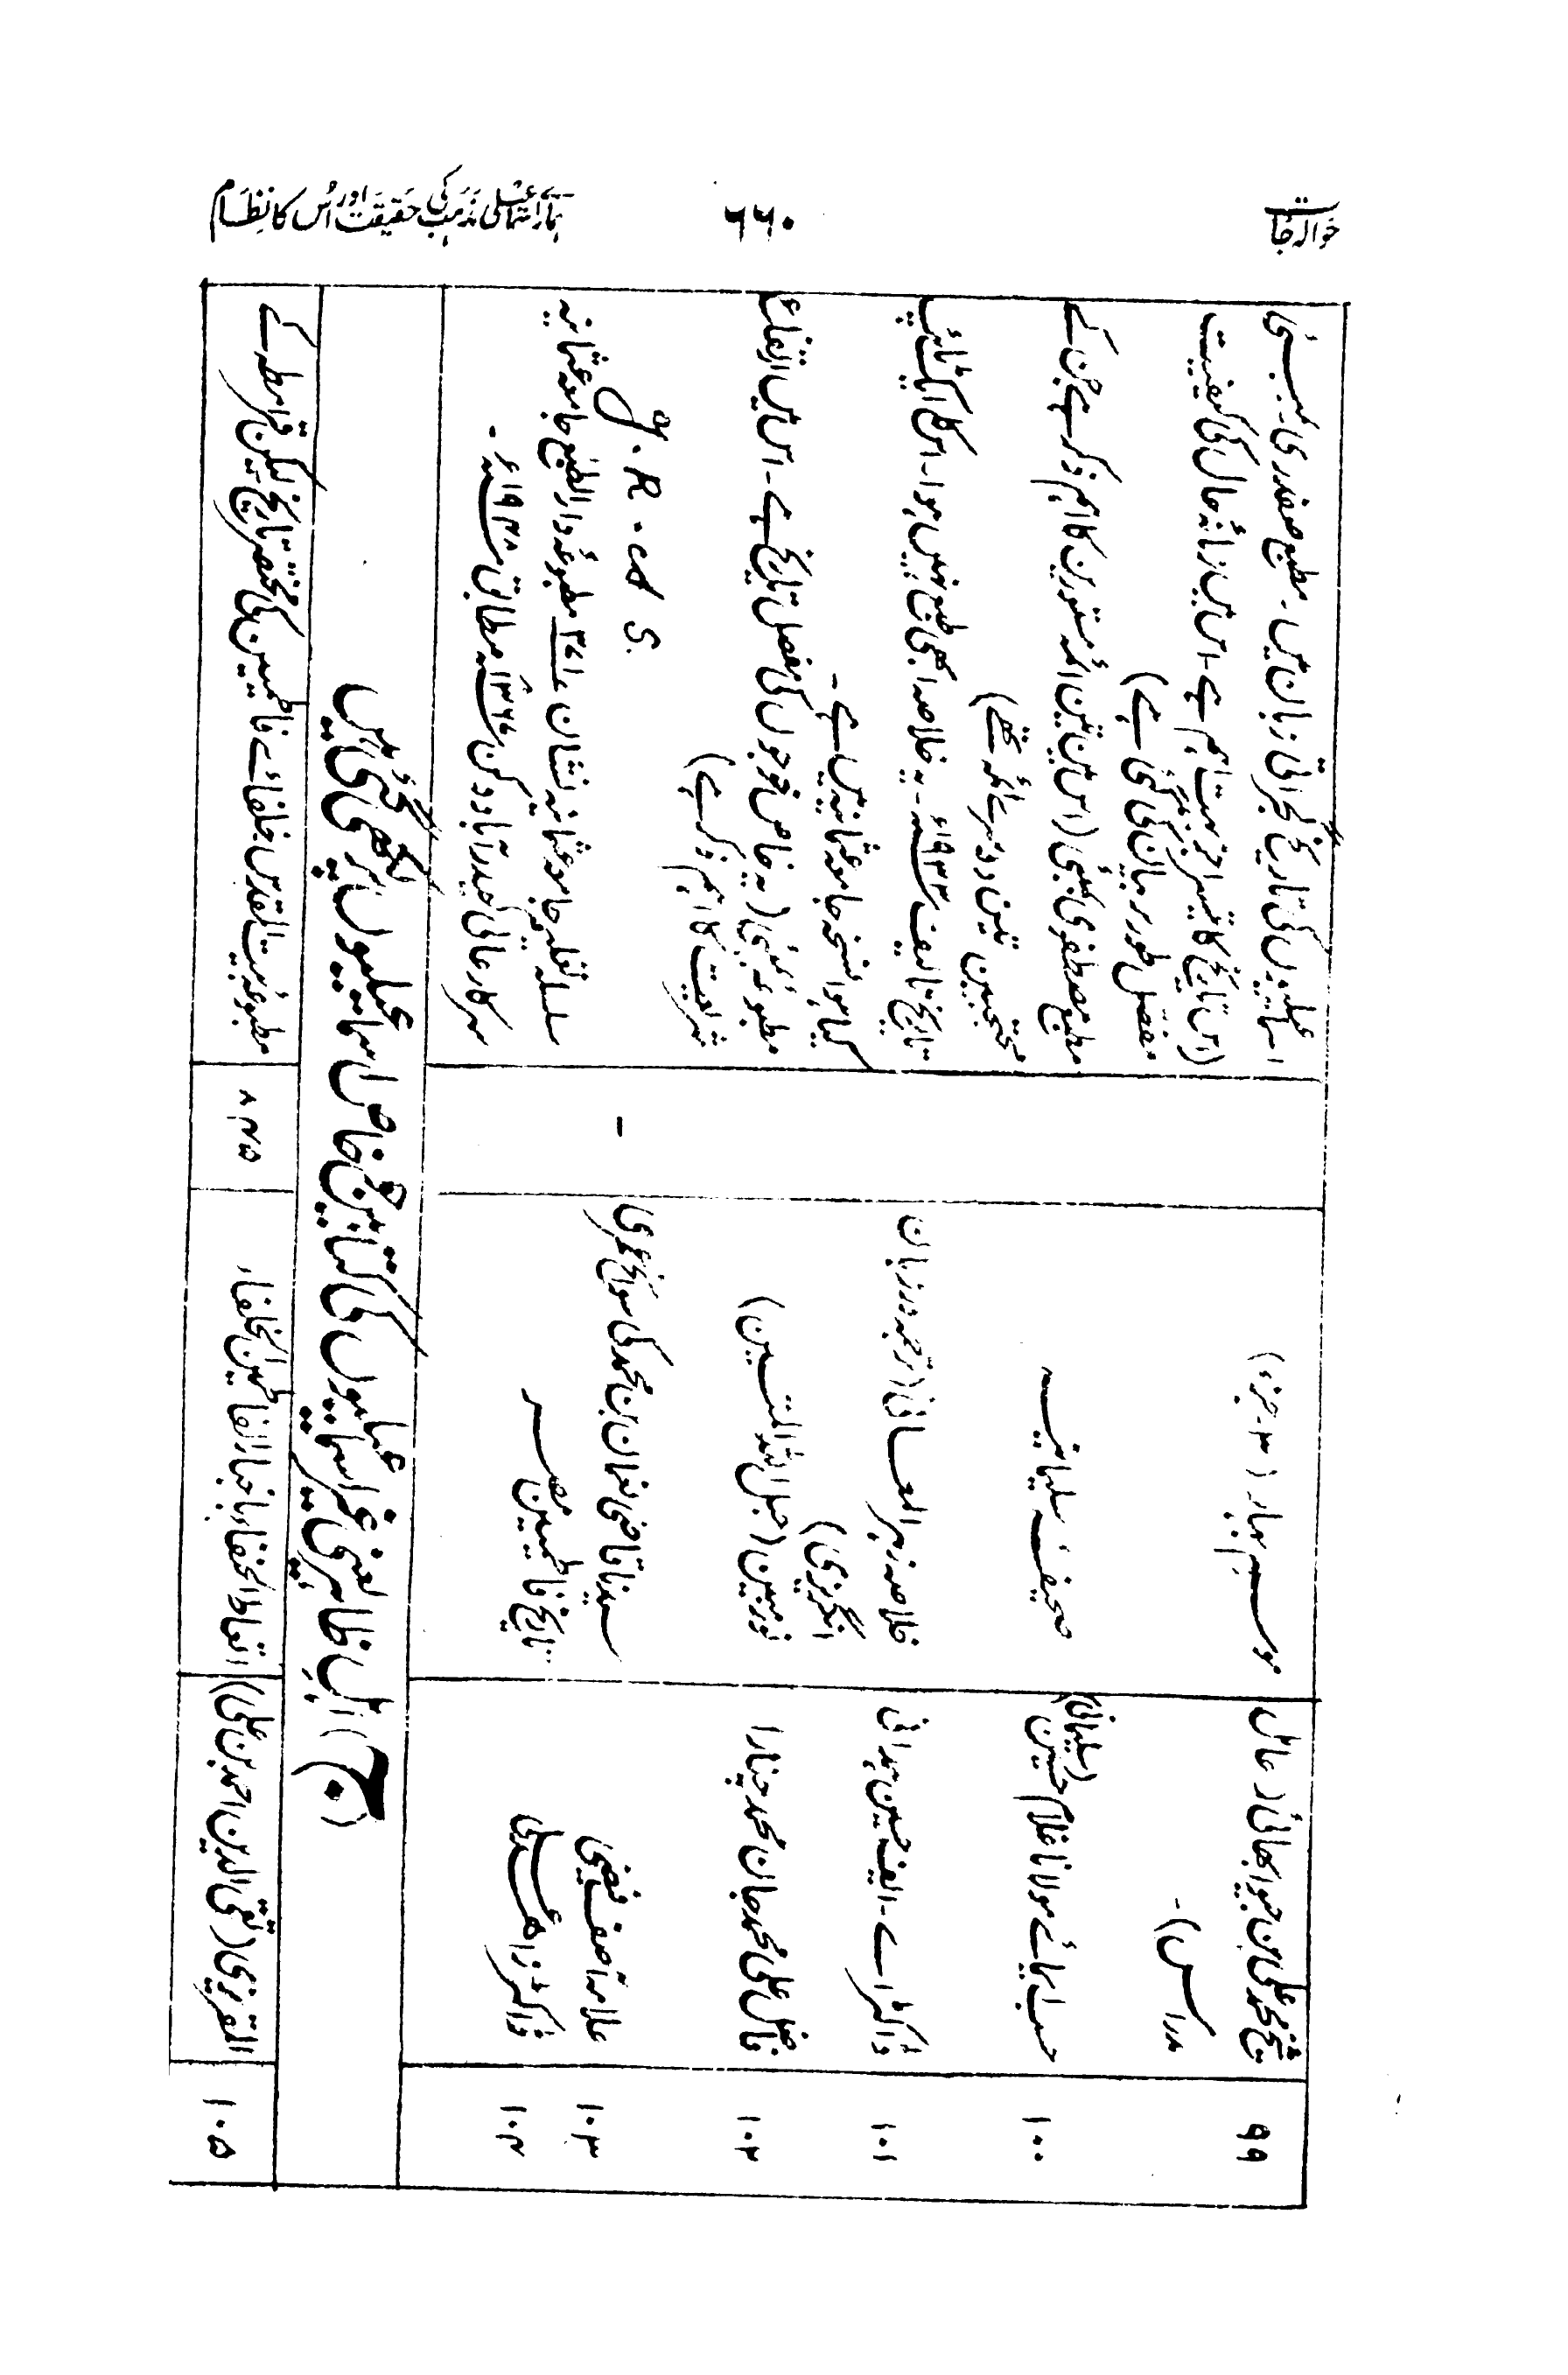 حوالہ جات
۶۶۰
ہمارے اسمٰعیلی مذہب کی حقیقت اور اُس کا نظام
۹۹
شیخ محمد علی بن جیوا بھائی (عامل
مدراس)۔
موسمِ بہار (۳۔ جزء)
اسماعیلیوں کی تاریخ گجراتی زبان میں۔ مطبع صفدری بمبئی
(اس تاریخ کا تیسرا جز بہت اہم ہے۔ اس میں زمانۂ حال کی کیفیت
مفصل طور پر بیان کی گئی ہے)
۱۰۰
حسب ایمائے مولانا غلام حسین
(سلیمانی)
صحیفۂ سلیمانیہ
مطبع مصطفوی بمبئی (اس میں تین ائمہ مستورین کا اہم ذکر ہے جن کے
محتجبین تین دوسرے ائمہ تھے)
۱۰۱
ڈاکٹر اے۔ ایف حسین ہمدانی
خلاصہ زہر المعانی (ترجمہ در زبان
انگریزی)
تاریخ تالیف ۱۹۳۳ء۔ یہ خلاصہ ابھی طبع نہیں ہوا۔ اس کا ایک ٹائپ
کیا ہوا نسخہ جامعہ عثمانیہ میں ہے۔
۱۰۲
فاضل علی محمد جان محمد چنارا
نورمبین (حبل اللہ المتین)
مطبوعہ بمبئی (یہ خاص خوجوں کی مفصل تاریخ ہے۔ اس میں ارتفاع
شریعت کا اہم ذکر ہے)
۱۰۳
علامہ آصف فیضی
سیدنا قاضی نعمان بن محمد کی سوانح عمری
–
J. R. A S.
۱۰۴
ڈاکٹر زاہد علی
تاریخ فاطمیین مصر
سلسلہ نقلیہ جامعہ عثمانیہ نشان ۳۴۱ مطبوعہ دارالطبع جامعہ عثمانیہ
سرکار عالی حیدرآباد دکن ۱۳۶۷ھ مطابق ۱۹۴۸ء۔
(ج) اہل ظاہر یعنی غیر اسماعیلیوں کی کتابیں جو خاص اسماعیلیوں پر لکھی گئیں
۱۰۵
المقریزی (تقی الدین احمد بن علی)
اتعاظ الحنفاء باخبار الفاطمیین الخلفاء
۸۴۵
مطبوعہ بیت المقدس خلفائے فاطمیین کی مختصر تاریخ لیکن قرامطہ کے